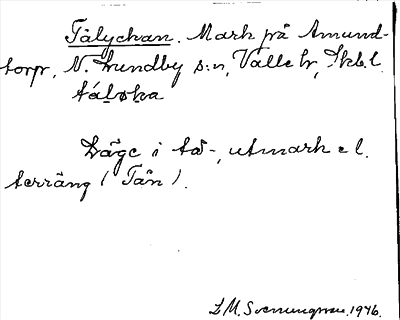 Tålyckan. Mark på Amund-
torp, N. Lundby s:n, Valle hr, Skb.l.
Läge i tå-, utmark el.
terräng (Tån).
L M. Svenungsson. 1946.